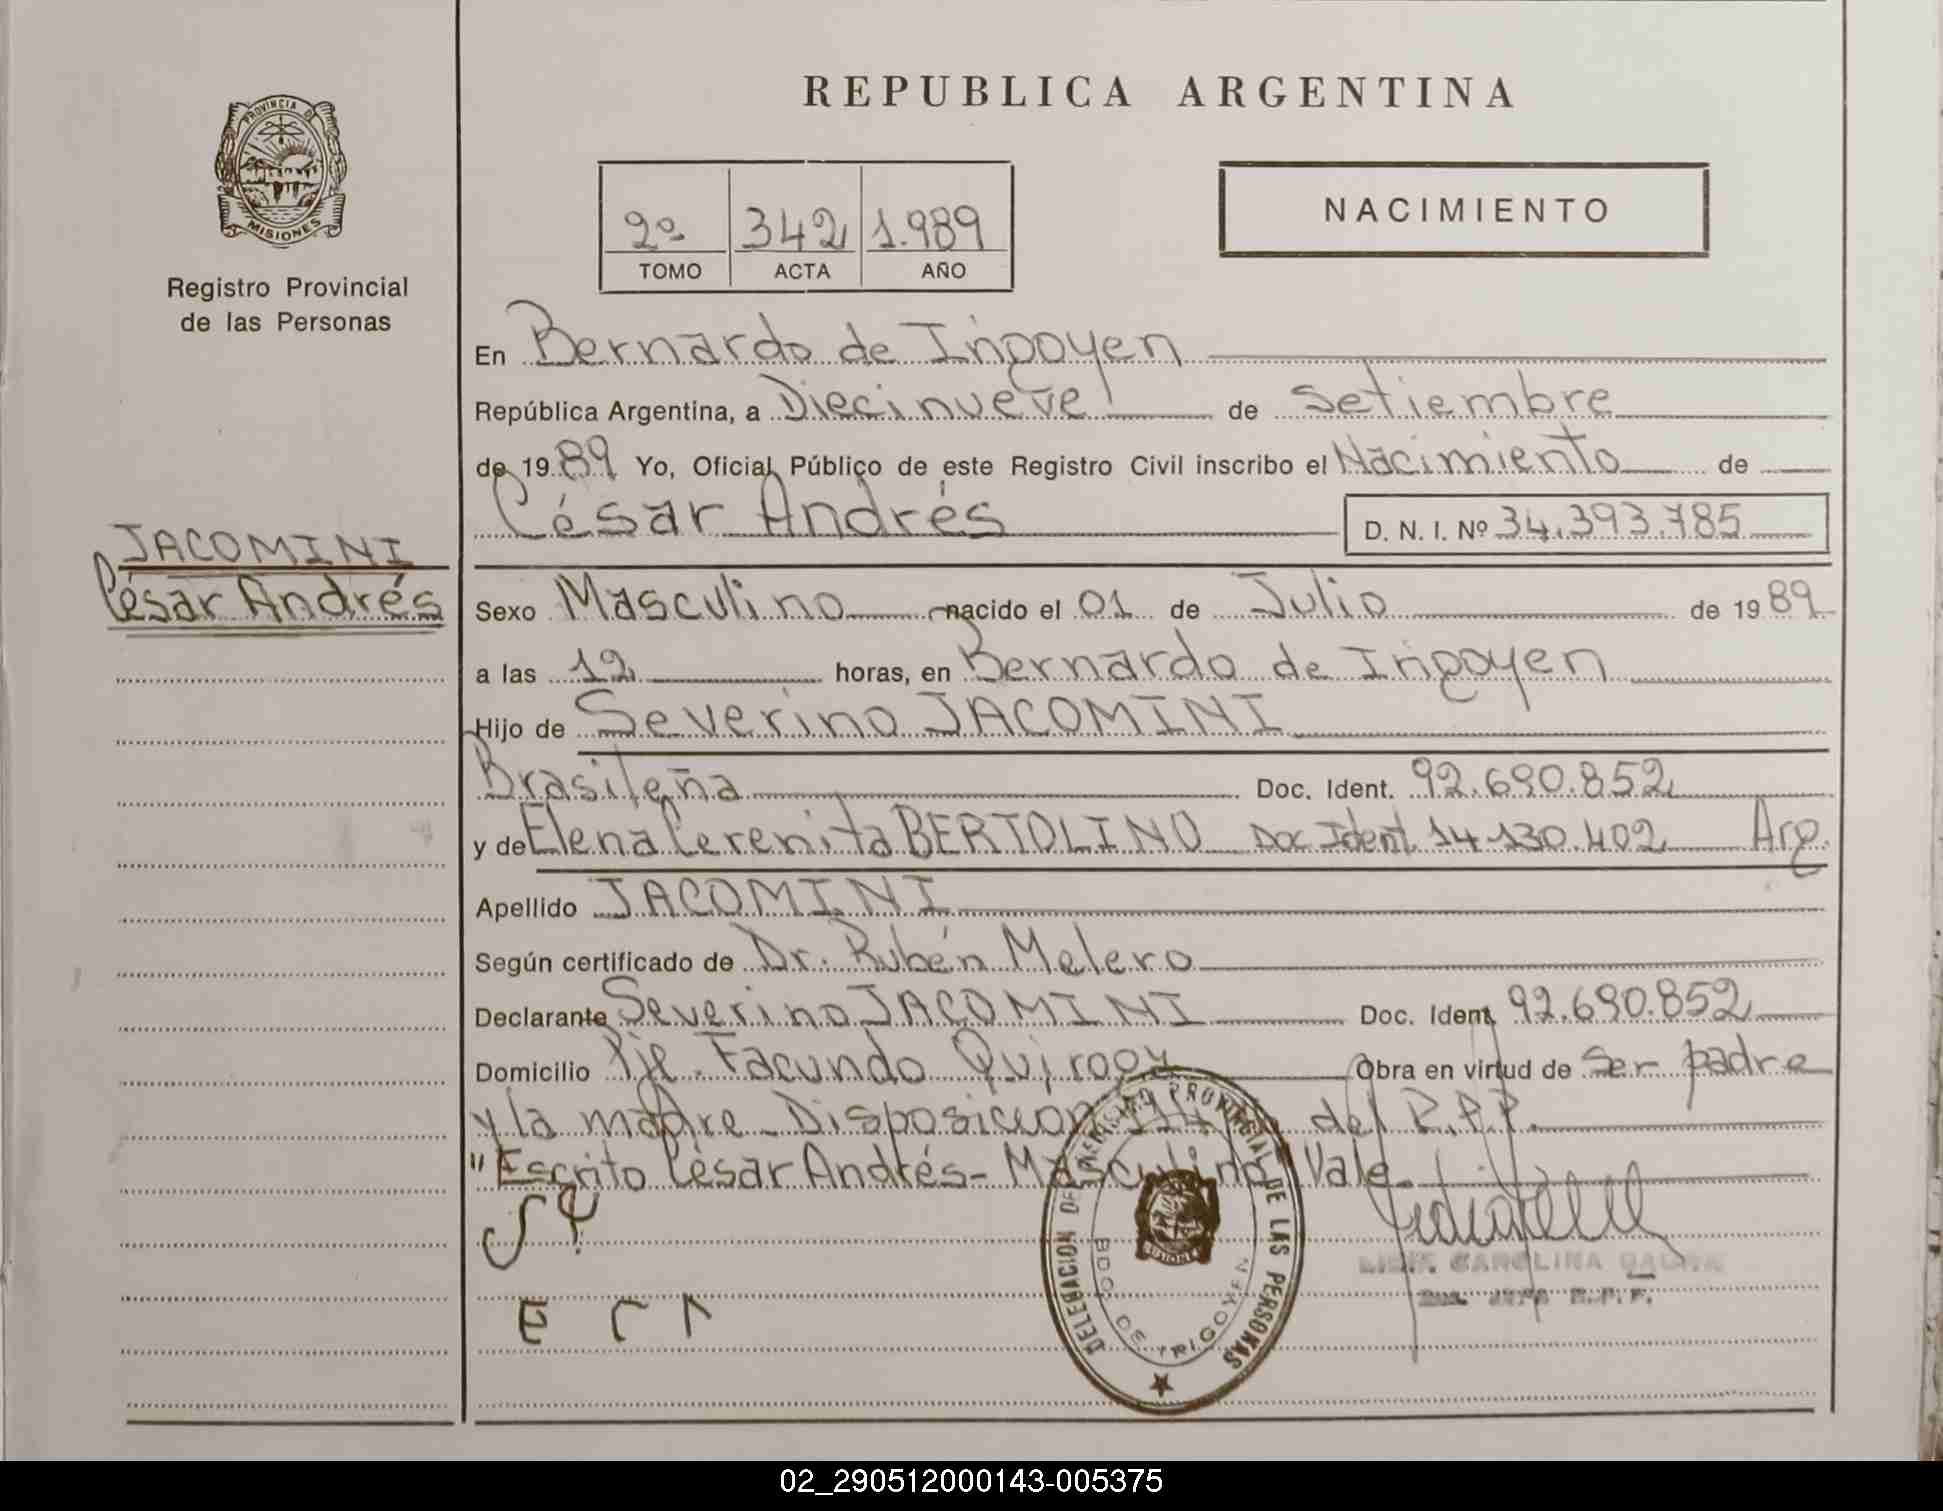 REPUBLICA ARGENTINA
PROVINCIA DE
MISIONES
Registro Provincial
de las Personas
2º 342 1.989
TOMO ACTA AÑO
NACIMIENTO
En Bernardo de Irigoyen
República Argentina, a Diecinueve de Setiembre
de 1989 Yo, Oficial Público de este Registro Civil inscribo el Nacimiento de
César Andrés D. N. I. Nº 34.393.785
JACOMINI
César Andrés
Sexo Masculino nacido el 01 de Julio de 1989
a las 12 horas, en Bernardo de Irigoyen
Hijo de Severino JACOMINI
Brasileña Doc. Ident. 92.690.852
y de Elena Cerenita BERTOLINO Doc Ident. 14.130.402 Arg.
Apellido JACOMINI
Según certificado de Dr. Rubén Melero
Declarante Severino JACOMINI Doc. Ident. 92.690.852
Domicilio Pje. Facundo Quiroga Obra en virtud de ser padre
y la madre Disposición del R.P.P.
"Escrito César Andrés - Masculino" Vale.
DELEGACION DEL REGISTRO PROVINCIAL DE LAS PERSONAS
BDO. DE IRIGOYEN
CAROLINA
E
02_290512000143-005375